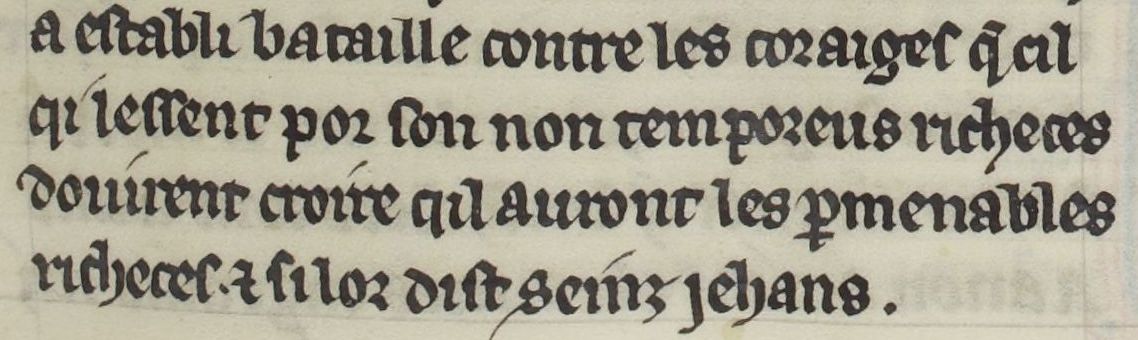 a establi bataille contre les coraiges q̃ cil
qi lessent por son non temporeus richeces
douirent croire qil auront les ꝑmenables
richeces. ⁊ si lor dist seinz jehans.